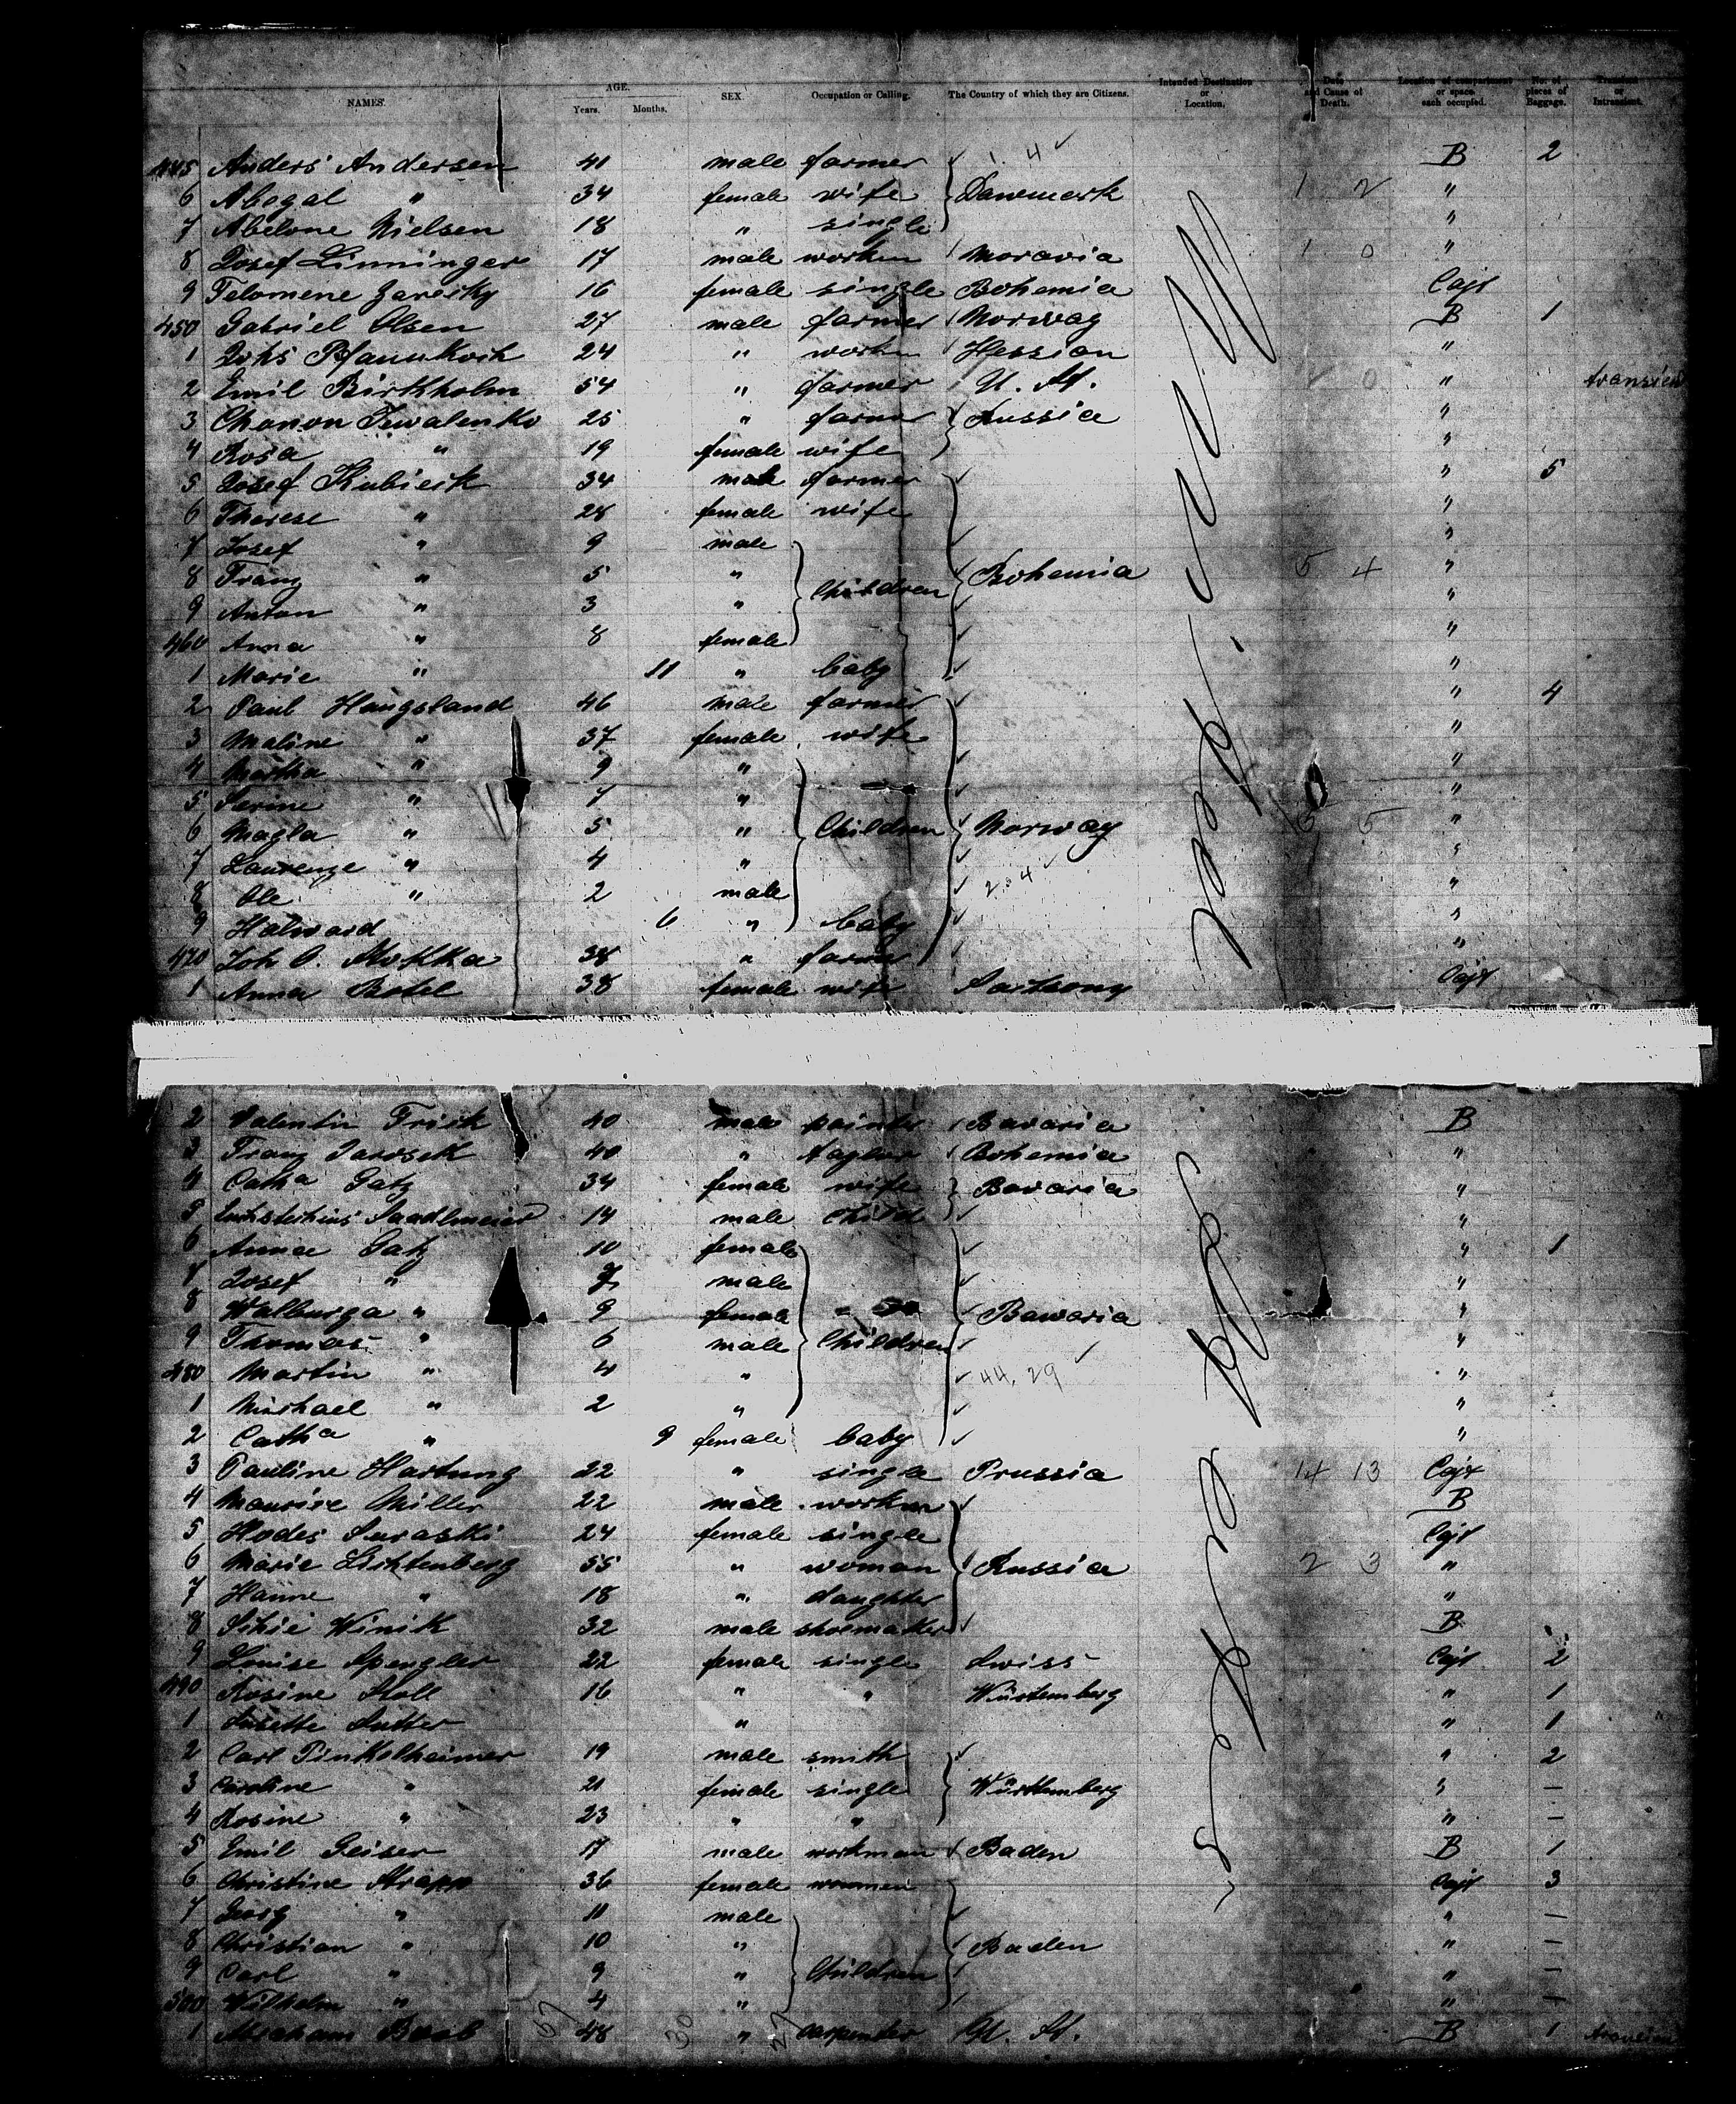 NAMES. AGE. Years. Months. SEX. Occupation or Calling. The Country of which they are Citizens. Intended Destination or Location. Date and Cause of Death. Location of compartment or space each occupied. No. of pieces of Baggage. Transient or Intransient.
445 Anders Andersen 41 male farmer 1. 4 B 2
6 Abegal " 34 female wife Danemark 1 2 "
7 Abelone Nielsen 18 " single "
8 Josef Linninger 17 male workm Moravia 1 0 "
9 Felomene Zaresky 16 female single Bohemia Cajt
450 Gabriel Olsen 27 male farmer Norway B 1
1 Johs Pfannkoch 24 " workm Hessian "
2 Emil Birkholm 54 " farmer U. St. 0 " transient
3 Chanon Tewalenko 25 " farmer Russia "
4 Rosa " 19 female wife "
5 Josef Kubicek 34 male farmer " 5
6 Therese " 28 female wife "
7 Josef " 9 male "
8 Franz " 5 " Children Bohemia 5 4 "
9 Anton " 3 " "
460 Anna " 8 female "
1 Marie " 11 " baby "
2 Paul Haugsland 46 male farmer " 4
3 Maline " 37 female wife "
4 Martha " 9 " "
5 Serine " 7 " "
6 Magla " 5 " Children Norway 5 "
7 Laurenze " 4 " "
8 Ole " 2 male 2.4 "
9 Halward 6 " baby "
470 Joh O. 38 " farmer "
1 Anna Botel 38 female wife Sachsony Cajt
2 Valentin Frisk 40 male painter Bavaria B
3 Franz Jarosek 40 " taylor Bohemia "
4 Catha Gatz 34 female wife Bavaria "
5 Saedlmeier 14 male Child "
6 Anna Gatz 10 female " 1
7 Josef " 7 male "
8 Walburga " 9 female Bawaria "
9 Thomas " 6 male Children "
480 Martin " 4 " 44, 29 "
1 Michael " 2 " "
2 Catha " 9 female baby "
3 Pauline Hartung 22 " single Prussia 14 13 Cajt
4 Maurice Miller 22 male workm B
5 Hodes Suraski 24 female single Cajt
6 Marie Lichtenberg 55 " woman Russia 2 3 "
7 Hanne " 18 " daughter "
8 Schie Winik 32 male shoemaker B
9 Louise Spengler 22 female single Swiss Cajt 2
490 Rosine Stoll 16 " " Würtemberg " 1
1 Susette Sutter " " 1
2 Carl Pinkelheimer 19 male smith " 2
3 Caroline " 21 female single Württemberg " —
4 Rosine " 23 " " " —
5 Emil Geiser 17 male workman Baden B 1
6 Christine Strapp 36 female women Cajt 3
7 Georg " 11 male " —
8 Christian " 10 " Baden " —
9 Carl " 9 " Children " —
500 Wilhelm " 4 " " —
1 Abraham Baab 48 " carpenter U. St. B 1 transient
57 30 27